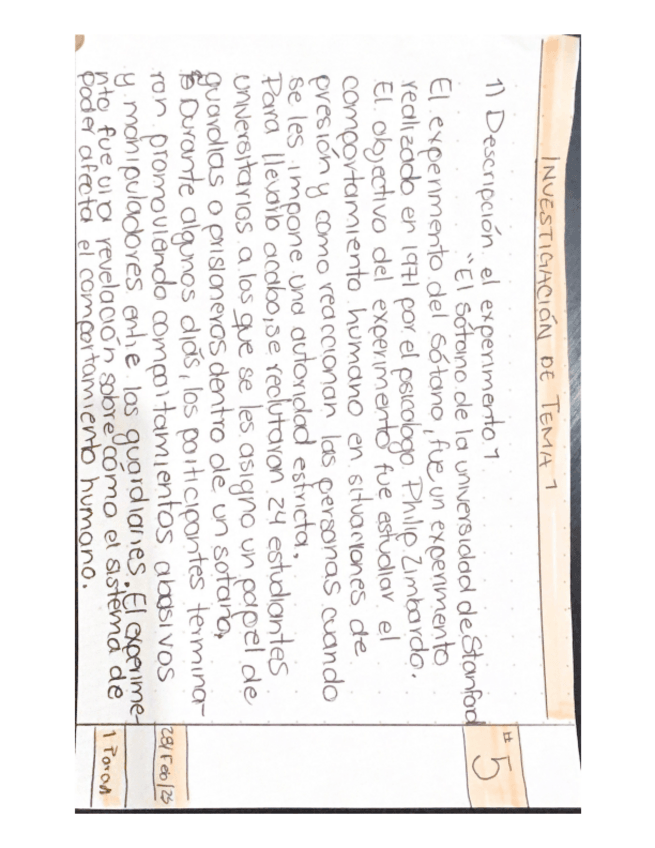 INVESTIGACIÓN DE TEMA 1
# 5
1) Descripción el experimento 1
"El sótano de la universidad de Stanford
El experimento del sótano, fue un experimento
realizado en 1971 por el psicologo Philip Zimbardo.
El objectivo del experimento fue estudiar el
comportamiento humano en situaciones de
presión y como reaccionan las personas cuando
se les impone una autoridad estricta.
Para llevarlo acabo, se reclutaron 24 estudiantes
universitarios a los que se les asigno un papel de
guardias o prisioneros dentro de un sotano.
Durante algunos diás, los participantes termina-
ron promoviendo comportamientos abasivos
y manipuladores entre las guardianes. El experime-
nto fue una revelación sobre cómo el sistema de
poder afecta el comportamiento humano.
28/Feb/25
1 Paron